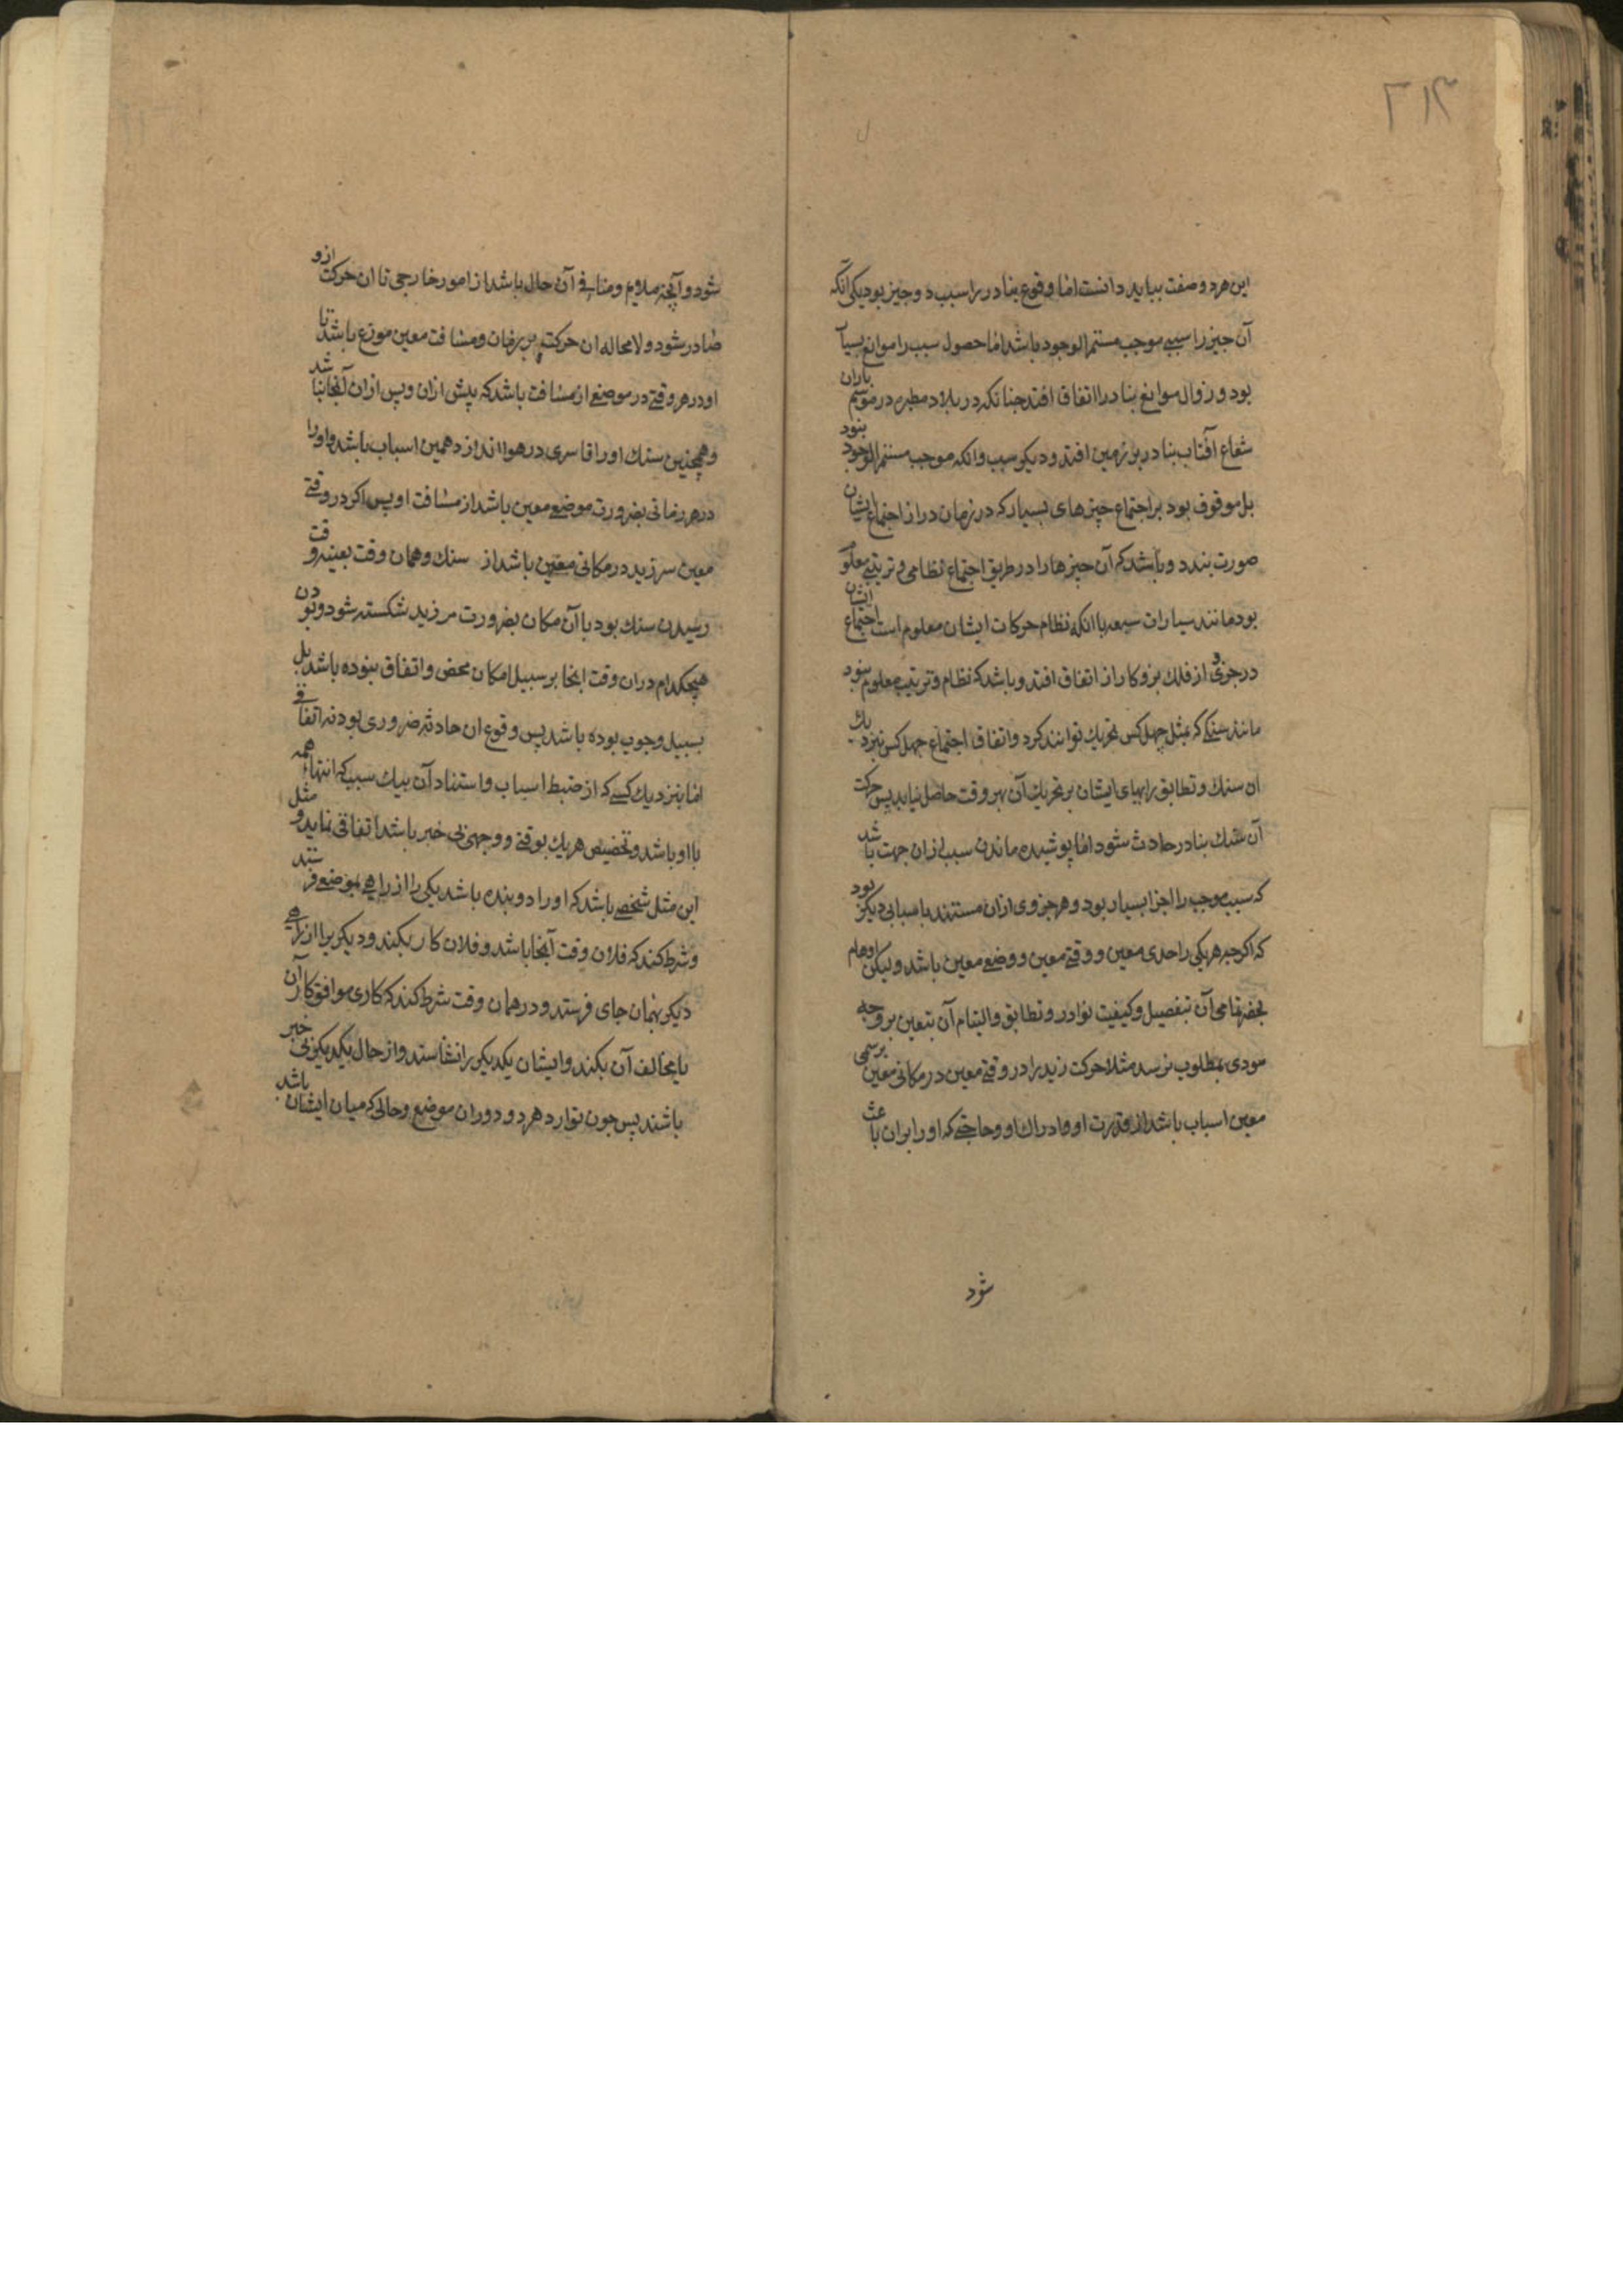 ۲۱۴
این هر دو صفت بباید دانست اما وقوع بنادر را سبب دو چیز بود یکی آنکه
آن چیز را سببی موجب مستمر الوجود باشد اما حصول سبب را موانع بسیار
بود و زوال موانع بنادر اتفاق افتد چنانکه در بلاد مطیره در موسم باران
شعاع آفتاب بنادر بر زمین افتد و دیگر سبب وانکه موجب مستمر الوجود بنود
بل موقوف بود بر اجتماع چیزهای بسیار که در زمان دراز اجتماع ایشان
صورت بندد و باشد که آن چیزها را در طریق اجتماع نظامی و ترتیبی معلوم
بود مانند سیارات سبعه با انکه نظام حرکات ایشان معلوم است اجتماع ایشان
در جزوی از فلک بروکار از اتفاق افتد و باشد که نظام و ترتیب معلوم بنود
مانند سنگی که بمثل چهل کس تحریک توانند کرد و اتفاق اجتماع چهل کس نزدیک
ان سنك و تطابق رایهای ایشان بر تحریك آن بهر وقت حاصل نیاید پس حرکت
آن سنك بنادر حادث شود اما پوشیده ماندن سبب ازان جهت باشد
که سبب موجب را اجزا بسیار بود و هر جزوی ازان مستند باسبابی دیگر بود
که اکرچه هریکی را حدی معین و وقتی معین و وضعی معین باشد ولیکن اوهام
بتمامی آن بتفصیل و کیفیت نوادر و تطابق و التیام آن بتعین بر وجه
مودی بمطلوب نرسد مثلا حرکت زید را در وقتی معین در مکانی معین برسمی
معین اسباب باشد از قدرت او و ادراك او و حاجتی که او را بران باعث
شود
شود و آنچه ملایم و منافی آن حال باشد از امور خارجی تا ان حرکت ازو
صادر شود و لا محاله ان حرکت بر زمان و مسافت معین موزع باشد تا
او در هر وقتی در موضعی از مسافت باشد که پیش ازان و پس ازان آنجا نباشد
و همچنین سنك او را قاسری در هوا اندازد همین اسباب باشد و او را
در هر زمانی بضرورت موضعی معین باشد از مسافت او پس اکر در وقتی
معین سر زید در مکانی معین باشد از سنك و همان وقت بعینه وقت
رسیدن سنك بود با آن مکان بضرورت سر زید شکسته شود و بودن
هیچکدام دران وقت انجا بر سبیل امکان محض و اتفاق بنوده باشد بل
بسبیل وجوب بوده باشد پس وقوع ان حادثه ضروری بود نه اتفاقی
اما بنزدیك کسی که از ضبط اسباب و استناد آن بیك سبب که انتهاء همه
با او باشد و تخصیص هریك بوقتی و وجهی بی خبر باشد اتفاقی نماید و مثل
این مثل شخصی باشد که او را دو بنده باشد یکی را از راهی بموضعی فرستد
و شرط کند که فلان وقت آنجا باشد و فلان کار بکند و دیکر یرا از راهی
دیکر بهمان جای فرستد و در همان وقت شرط کند که کاری موافق کار آن
یا مخالف آن بکند و ایشان یکدیکر را نشناسند و از حال یکدیکر بی خبر
باشند پس چون توارد هر دو دوران موضع و حالی که میان ایشان باشد